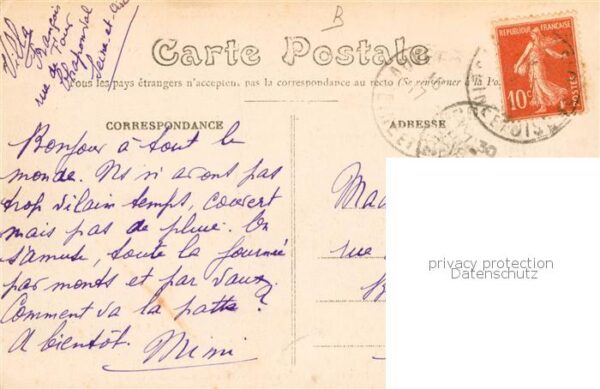 Villa
Français
rue de Tour
Seine-et-Oise
B
Carte Postale
Tous les pays étrangers n'acceptent pas la correspondance au recto (Se renseigner à la Po
RÉPUBLIQUE FRANÇAISE
10c
POSTES
CORRESPONDANCE
ADRESSE
Bonjour à tout le
monde. Ns n'avons pas
trop vilain temps, couvert
mais pas de pluie. On
s'amuse, toute la journée
par monts et par vaux.
Comment va la patte?
A bientôt. Mimi
Mad
rue
privacy protection
Datenschutz